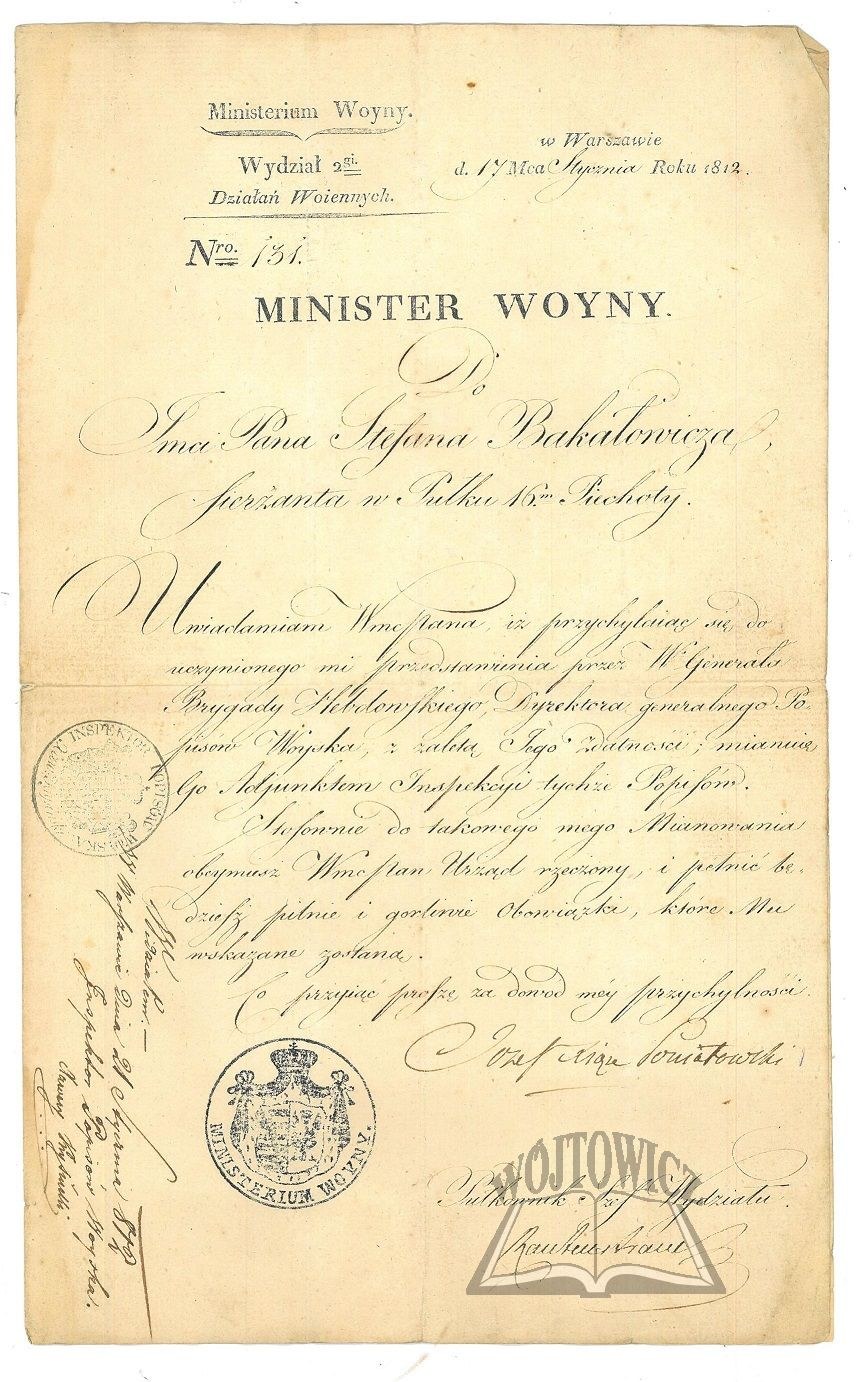 Ministerium Woyny.
Wydział 2gi.
Działań Woiennych.
w Warszawie
d. 17 Mca Stycznia Roku 1812.
Nro. 131.
MINISTER WOYNY.
Do
Jmci Pana Stefana Bakałowicza,
sierżanta w Pułku 16m Piechoty.
Uwiadamiam Wmcpana, iż przychylaiąc się do
uczynionego mi przedstawienia przez W. Generała
Brygady Hebdowskiego, Dyrektora generalnego Po-
pisów Woyska, z zaletą Jego zdatności; mianuię
Go Adjunktem Inspekcyi tychże Popisów.
Stosownie do takowego mego Mianowania
obeymiesz Wmcpan Urząd rzeczony, i pełnić bę-
dziesz pilnie i gorliwie Obowiązki, które Mu
wskazane zostaną.
Co przyiąć proszę za dowod mey przychylności.
Jozef Xiąże Poniatowski
Pułkownik Szef Wydziału.
MINISTERIUM WOYNY.
INSPEKTOR POPISÓW
Widziałem.—
w Warszawie Dnia 21 Stycznia
Inspektor Popisów Woyska.
WÓJTOWICZ